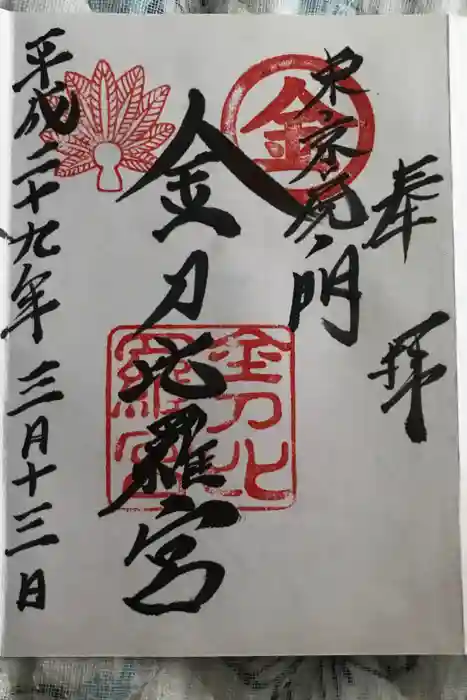 奉拝
東京虎ノ門
金
金刀比羅宮
金刀比羅宮
平成二十九年三月十三日